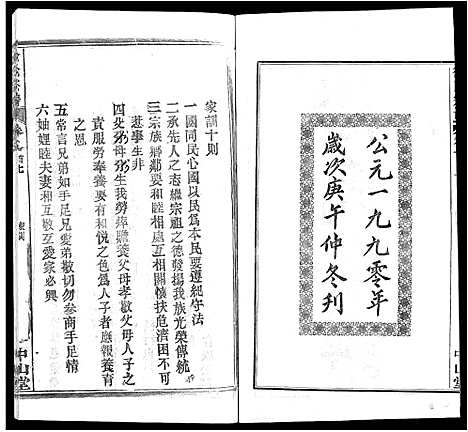 公元一九九零年
歲次庚午仲冬刊
家訓十則
一國同民心國以民為本民要遵紀守法
二承先人之志繼宗祖之德發揚我族光榮傳統
三宗族鄉鄰要和睦相處互相關懷扶危濟困不可
惹事生非
四父母生我勞瘁贍養父母孝敬父母人子之
責服勞奉養要有和悅之色為人子者應報養育
之恩
五常言兄弟如手足兄愛弟敬切勿參商手足情
六妯娌睦夫妻和互敬互愛家必興
中山堂